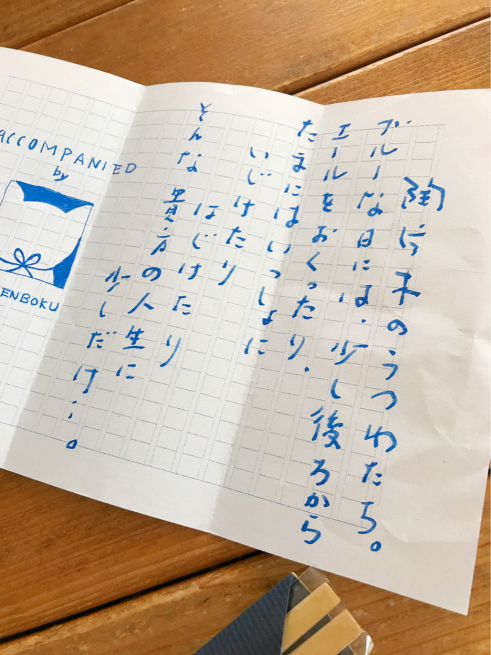 陶片木のうつわたち。
ブルーな日には、少し後ろから
エールをおくったり、
たまにはいっしょに
いじけたり
はじけたり
そんな貴方の人生に
少しだけ…。
ACCOMPANIED
by
ENBOKU